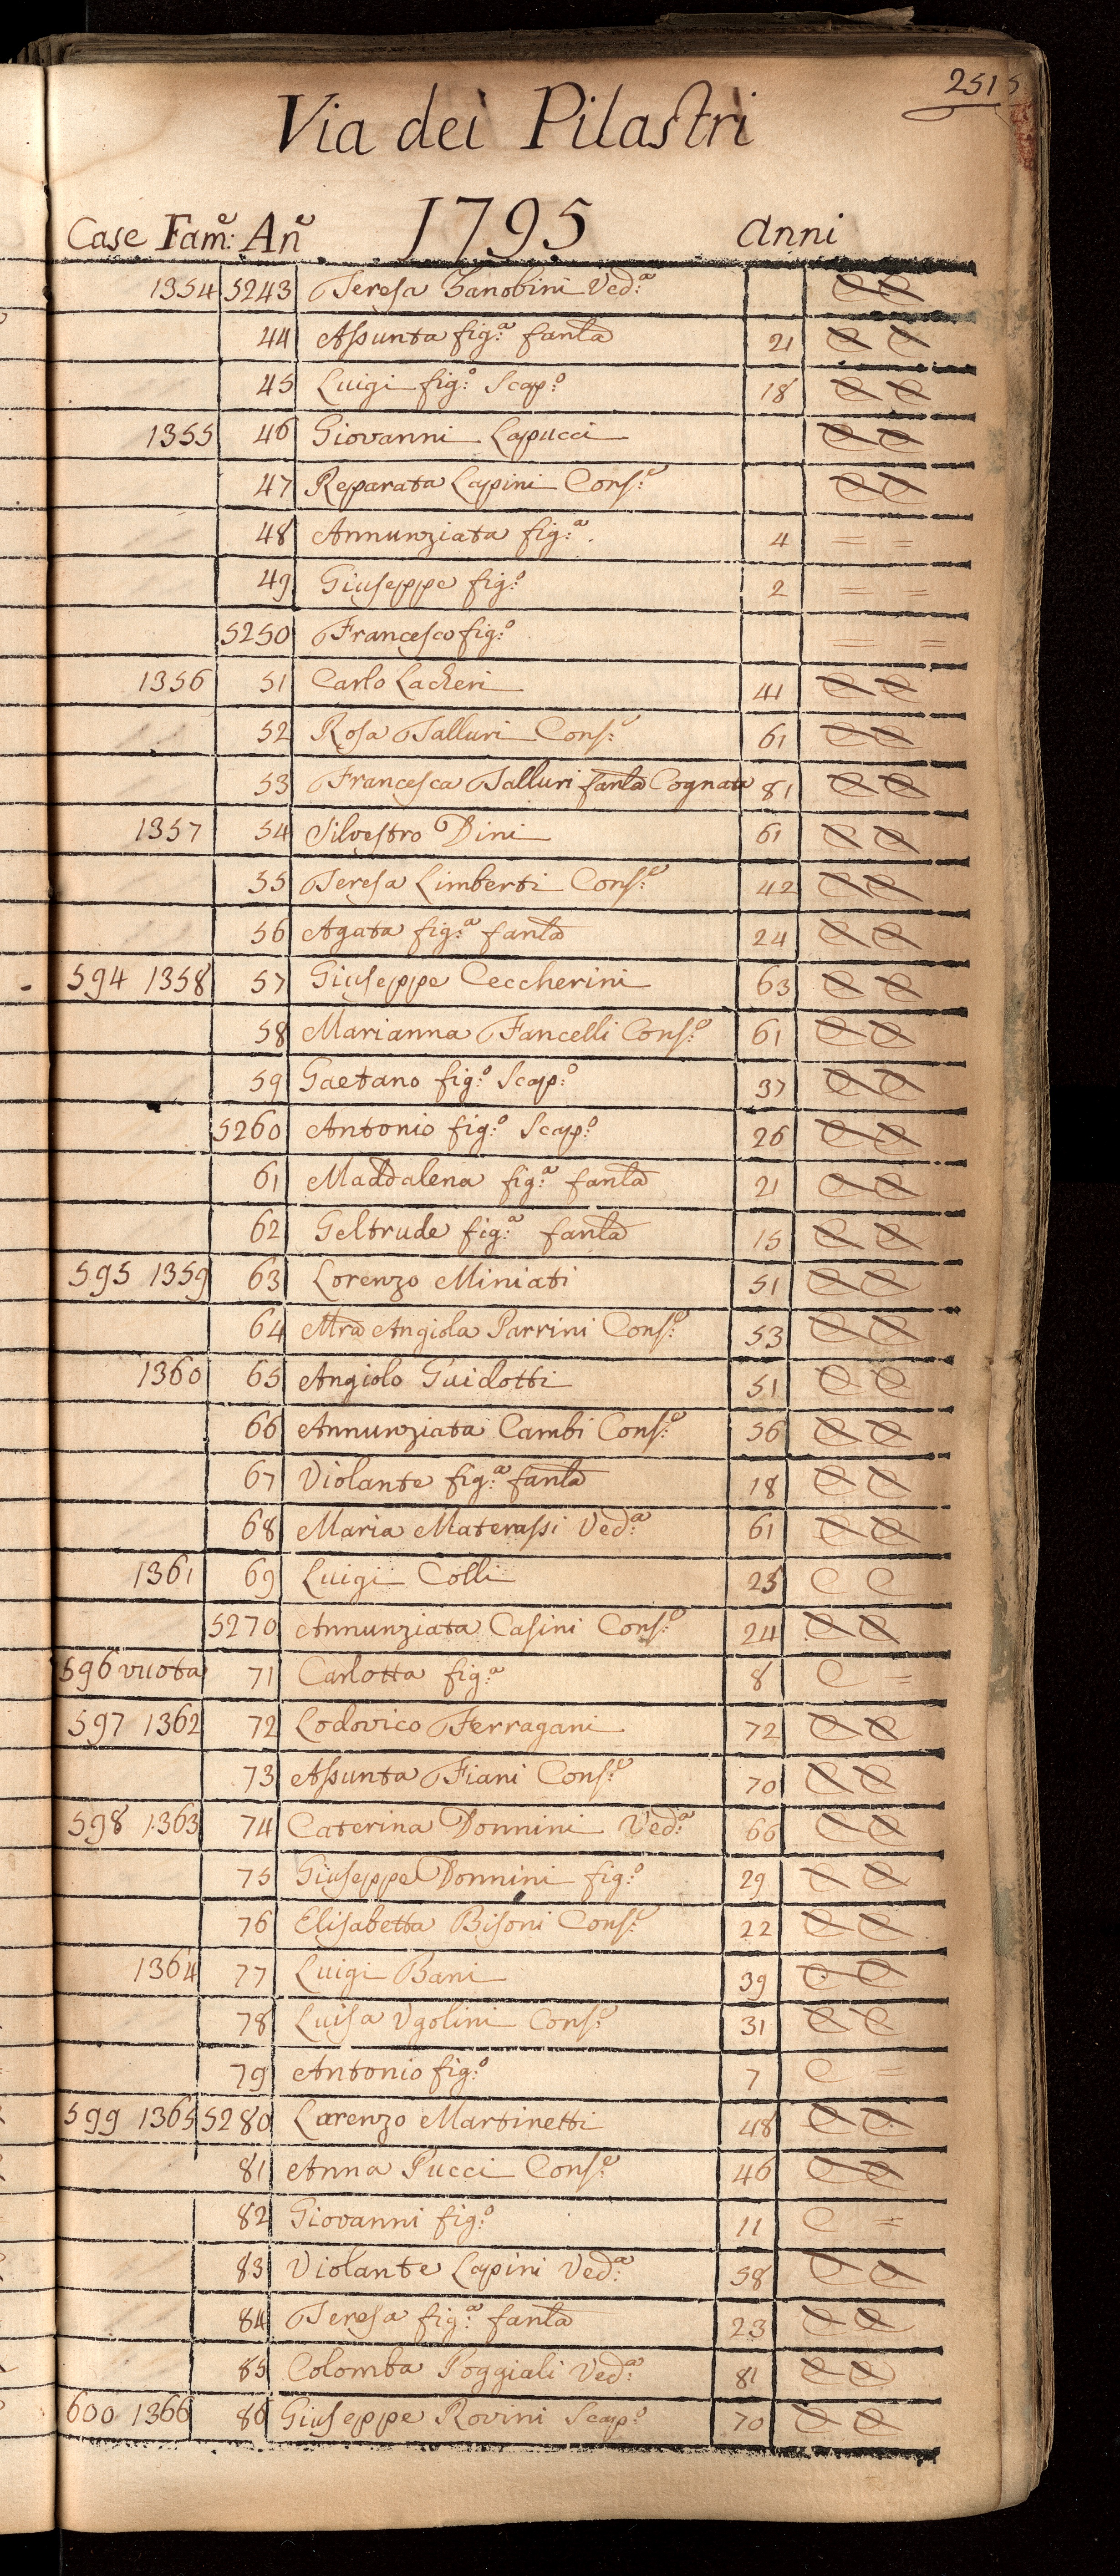 251 5
Via dei Pilastri
Case Fam:e An:e 1795 Anni
1354 5243 Teresa Zanobini Ved:a
44 Assunta fig:a fanla 21
45 Luigi fig:o Scap:o 18
1355 46 Giovanni Lapucci
47 Reparata Lapini Cons:e
48 Annunziata fig:a 4 = =
49 Giuseppe fig:o 2 = =
5250 Francesco fig:o = =
1356 51 Carlo Lacheri 41
52 Rosa Talluri Cons:e 61
53 Francesca Talluri fanla Cognata 81
1357 54 Silvestro Dini 61
55 Teresa Limberti Cons:e 42
56 Agata fig:a fanla 24
594 1358 57 Giuseppe Ceccherini 63
58 Marianna Fancelli Cons:e 61
59 Gaetano fig:o Scap:o 37
5260 Antonio fig:o Scap:o 26
61 Maddalena fig:a fanla 21
62 Geltrude fig:a fanla 15
595 1359 63 Lorenzo Miniati 51
64 Mra Angiola Parrini Cons:e 53
1360 65 Angiolo Guidotti 51 C C
66 Annunziata Cambi Cons:e 56
67 Violante fig:a fanla 18
68 Maria Materassi Ved:a 61
1361 69 Luigi Colli 25 C C
5270 Annunziata Casini Cons:e 24
596 vuota 71 Carlotta fig:a 8 C =
597 1362 72 Lodovico Ferragani 72
73 Assunta Fiani Cons:e 70
598 1363 74 Caterina Donnini Ved:a 66
75 Giuseppe Donnini fig:o 29
76 Elisabetta Bisoni Cons:e 22
1364 77 Luigi Bani 39
78 Luisa Ugolini Cons:e 31
79 Antonio fig:o 7 C =
599 1365 5280 Lorenzo Martinetti 48
81 Anna Pucci Cons:e 46
82 Giovanni fig:o 11 C =
83 Violante Lapini Ved:a 58
84 Teresa fig:a fanla 23
85 Colomba Poggiali Ved:a 81
600 1366 86 Giuseppe Rovini Scap:o 70